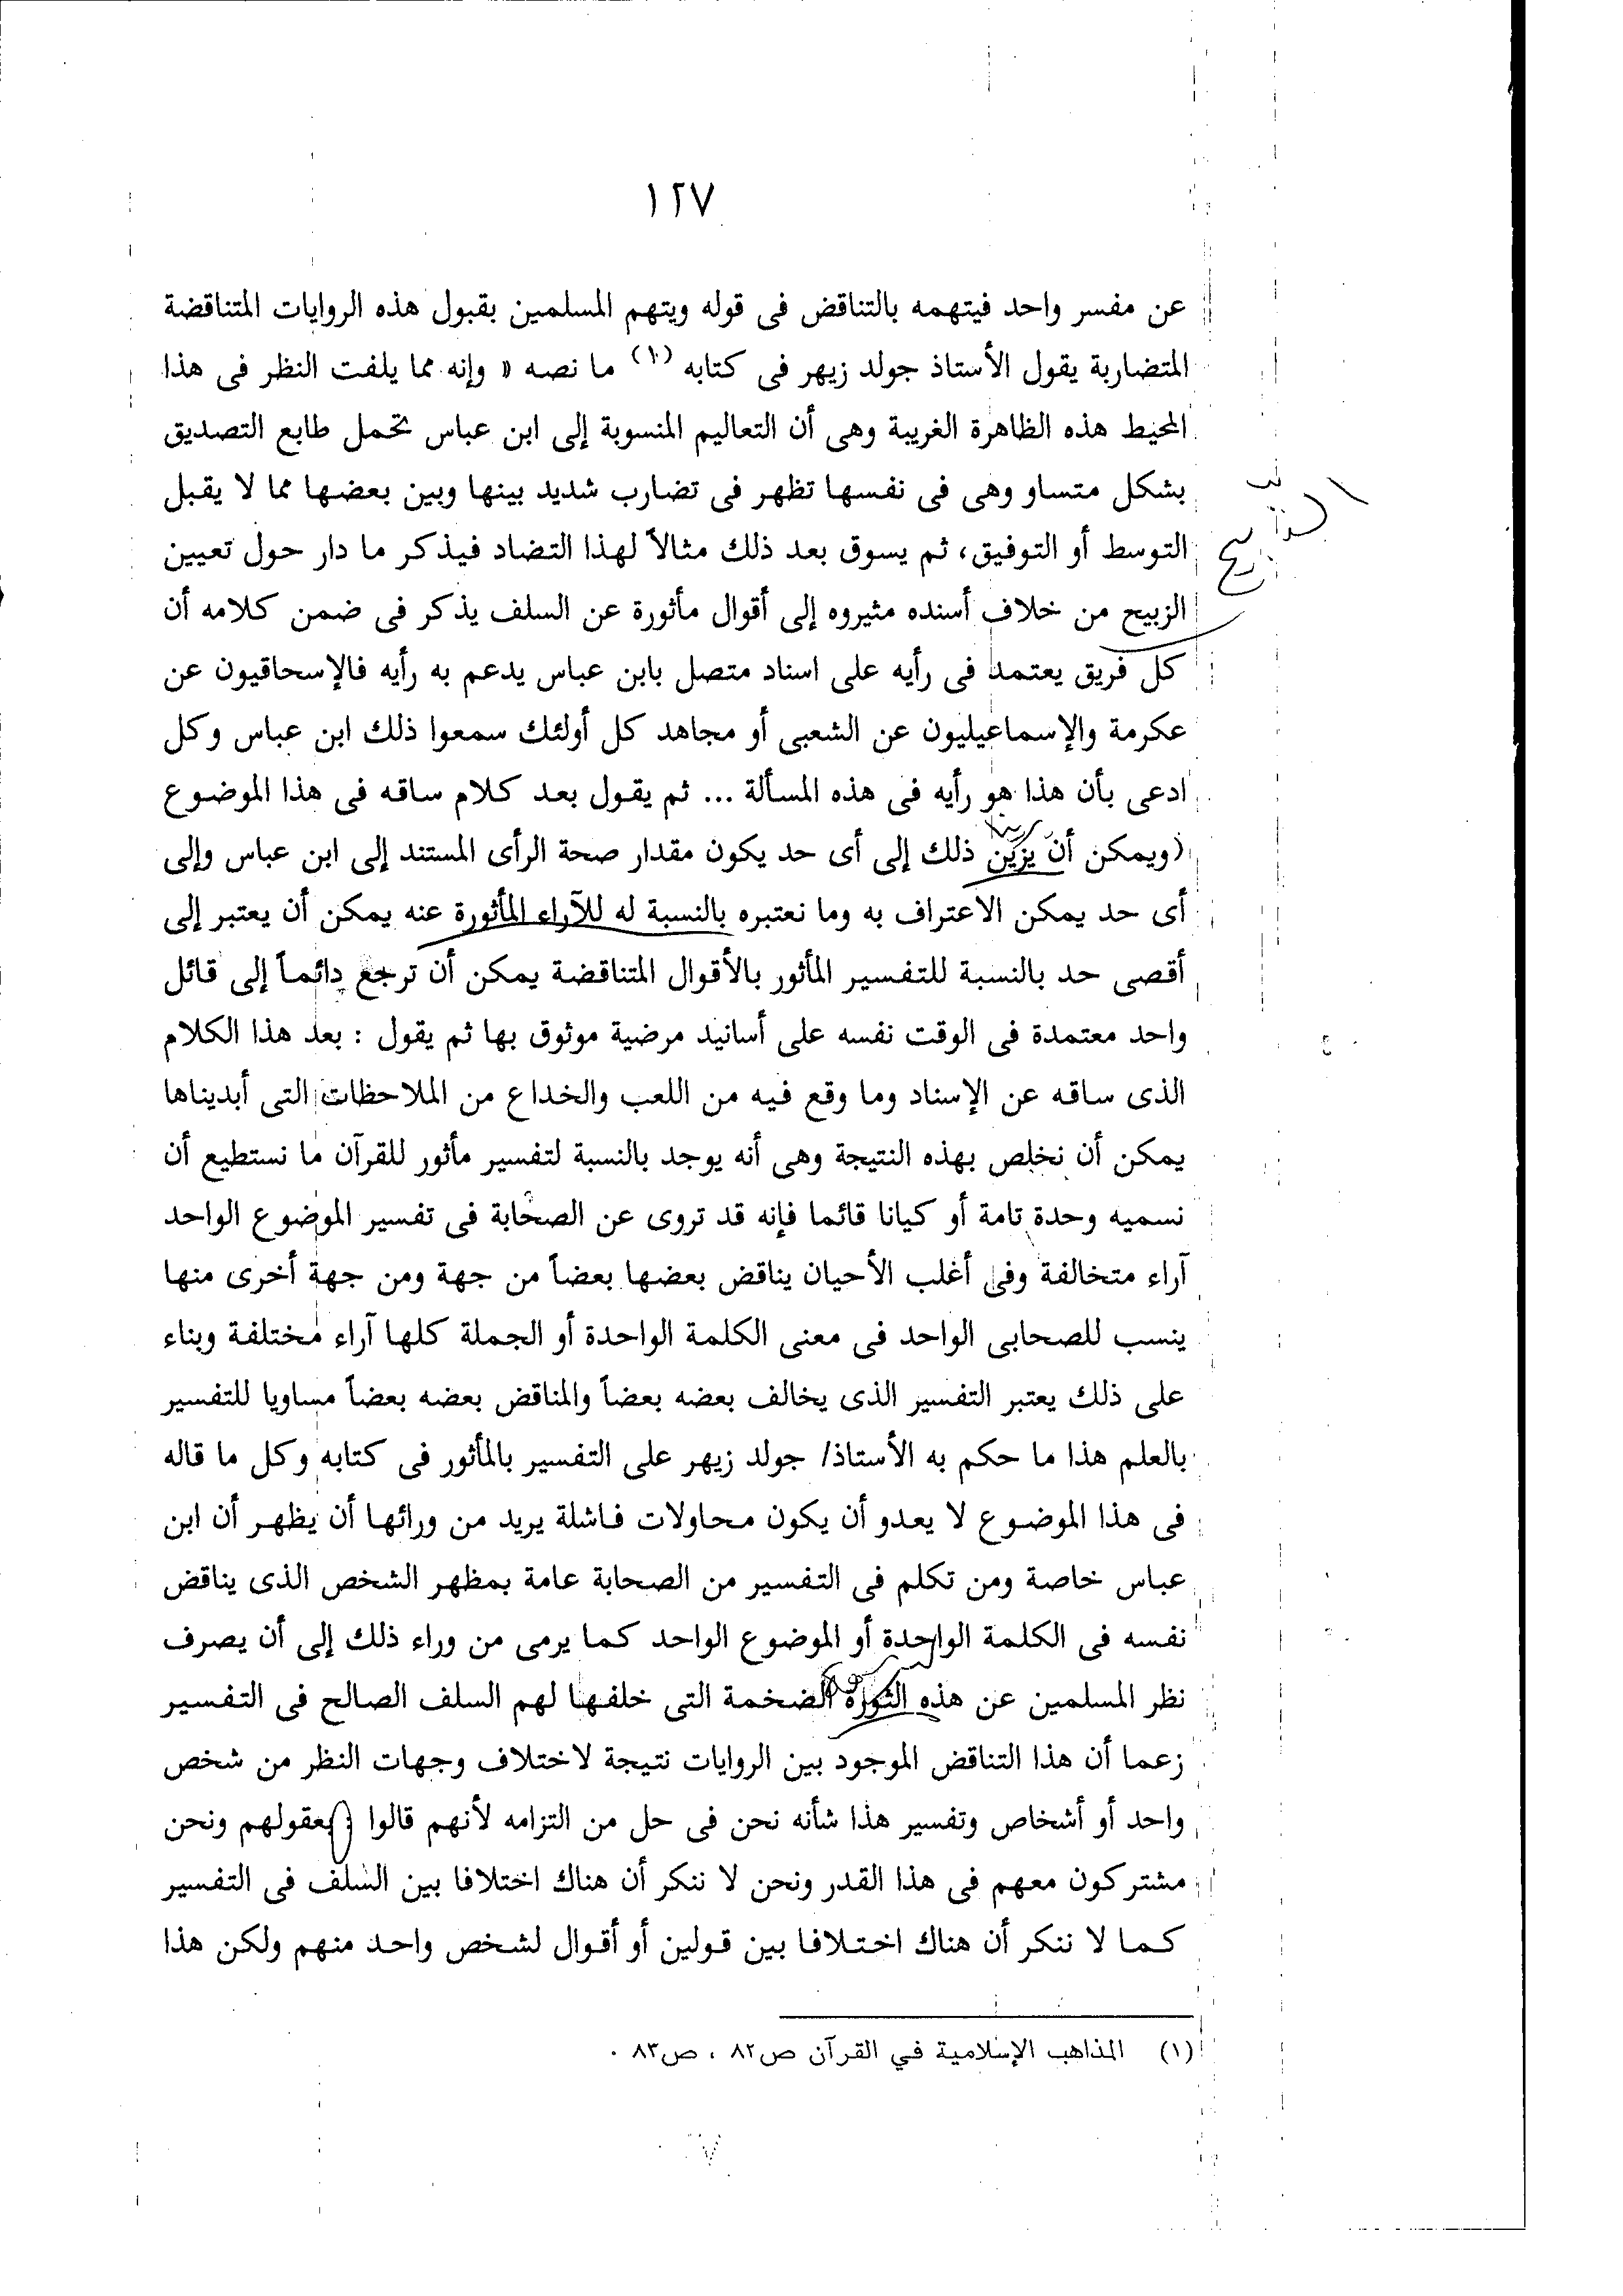 ١٢٧
عن مفسر واحد فيتهمه بالتناقض فى قوله ويتهم المسلمين بقبول هذه الروايات المتناقضة
المتضاربة يقول الأستاذ جولد زيهر فى كتابه (١) ما نصه « وإنه مما يلفت النظر فى هذا
المحيط هذه الظاهرة الغريبة وهى أن التعاليم المنسوبة إلى ابن عباس تحمل طابع التصديق
بشكل متساو وهى فى نفسها تظهر فى تضارب شديد بينها وبين بعضها مما لا يقبل
التوسط أو التوفيق، ثم يسوق بعد ذلك مثالاً لهذا التضاد فيذكر ما دار حول تعيين
الزبيح من خلاف أسنده مثيروه إلى أقوال مأثورة عن السلف يذكر فى ضمن كلامه أن
كل فريق يعتمد فى رأيه على اسناد متصل بابن عباس يدعم به رأيه فالإسحاقيون عن
عكرمة والإسماعيليون عن الشعبى أو مجاهد كل أولئك سمعوا ذلك ابن عباس وكل
ادعى بأن هذا هو رأيه فى هذه المسألة ... ثم يقول بعد كلام ساقه فى هذا الموضوع
(ويمكن أن يزين ذلك إلى أى حد يكون مقدار صحة الرأى المستند إلى ابن عباس وإلى
أى حد يمكن الاعتراف به وما نعتبره بالنسبة له للآراء المأثورة عنه يمكن أن يعتبر إلى
أقصى حد بالنسبة للتفسير المأثور بالأقوال المتناقضة يمكن أن ترجع دائماً إلى قائل
واحد معتمدة فى الوقت نفسه على أسانيد مرضية موثوق بها ثم يقول : بعد هذا الكلام
الذى ساقه عن الإسناد وما وقع فيه من اللعب والخداع من الملاحظات التى أبديناها
يمكن أن نخلص بهذه النتيجة وهى أنه يوجد بالنسبة لتفسير مأثور للقرآن ما نستطيع أن
نسميه وحدة تامة أو كيانا قائما فإنه قد تروى عن الصحابة فى تفسير الموضوع الواحد
آراء متخالفة وفى أغلب الأحيان يناقض بعضها بعضاً من جهة ومن جهة أخرى منها
ينسب للصحابى الواحد فى معنى الكلمة الواحدة أو الجملة كلها آراء مختلفة وبناء
على ذلك يعتبر التفسير الذى يخالف بعضه بعضاً والمناقض بعضه بعضاً مساويا للتفسير
بالعلم هذا ما حكم به الأستاذ/ جولد زيهر على التفسير بالمأثور فى كتابه وكل ما قاله
فى هذا الموضوع لا يعدو أن يكون محاولات فاشلة يريد من ورائها أن يظهر أن ابن
عباس خاصة ومن تكلم فى التفسير من الصحابة عامة بمظهر الشخص الذى يناقض
نفسه فى الكلمة الواحدة أو الموضوع الواحد كما يرمى من وراء ذلك إلى أن يصرف
نظر المسلمين عن هذه الثورة الضخمة التى خلفها لهم السلف الصالح فى التفسير
زعما أن هذا التناقض الموجود بين الروايات نتيجة لاختلاف وجهات النظر من شخص
واحد أو أشخاص وتفسير هذا شأنه نحن فى حل من التزامه لأنهم قالوا بعقولهم ونحن
مشتركون معهم فى هذا القدر ونحن لا ننكر أن هناك اختلافا بين السلف فى التفسير
كما لا ننكر أن هناك اختلافا بين قولين أو أقوال لشخص واحد منهم ولكن هذا
(١) المذاهب الإسلامية في القرآن ص٨٢ ، ص٨٣ .